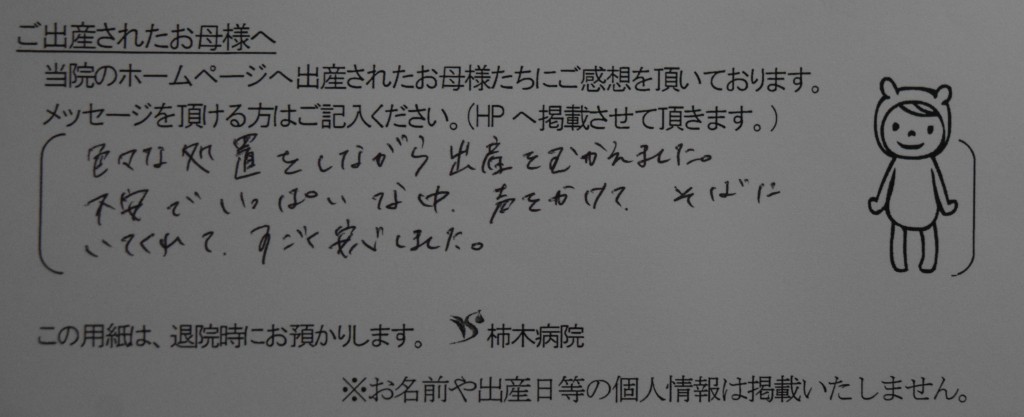 ご出産されたお母様へ
当院のホームページへ出産されたお母様たちにご感想を頂いております。
メッセージを頂ける方はご記入ください。(HPへ掲載させて頂きます。)
色々な処置をしながら出産をむかえました。
不安でいっぱいな中、声をかけて、そばに
いてくれて、すごく安心しました。
この用紙は、退院時にお預かりします。 柿木病院
※お名前や出産日等の個人情報は掲載いたしません。